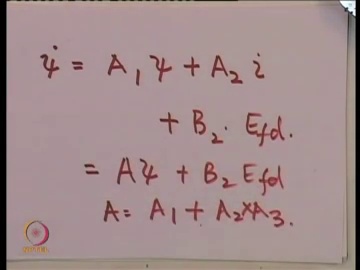 ψ̇ = A₁ψ + A₂ i
+ B₂. E_fd.
= Aψ + B₂ E_fd
A = A₁ + A₂×A₃.
NPTEL